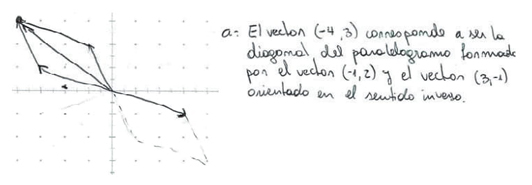 a = El vector (-4,3) corresponde a ser la
diagonal del paralelogramo formado
por el vector (-1,2) y el vector (3,-1)
orientado en el sentido inverso.